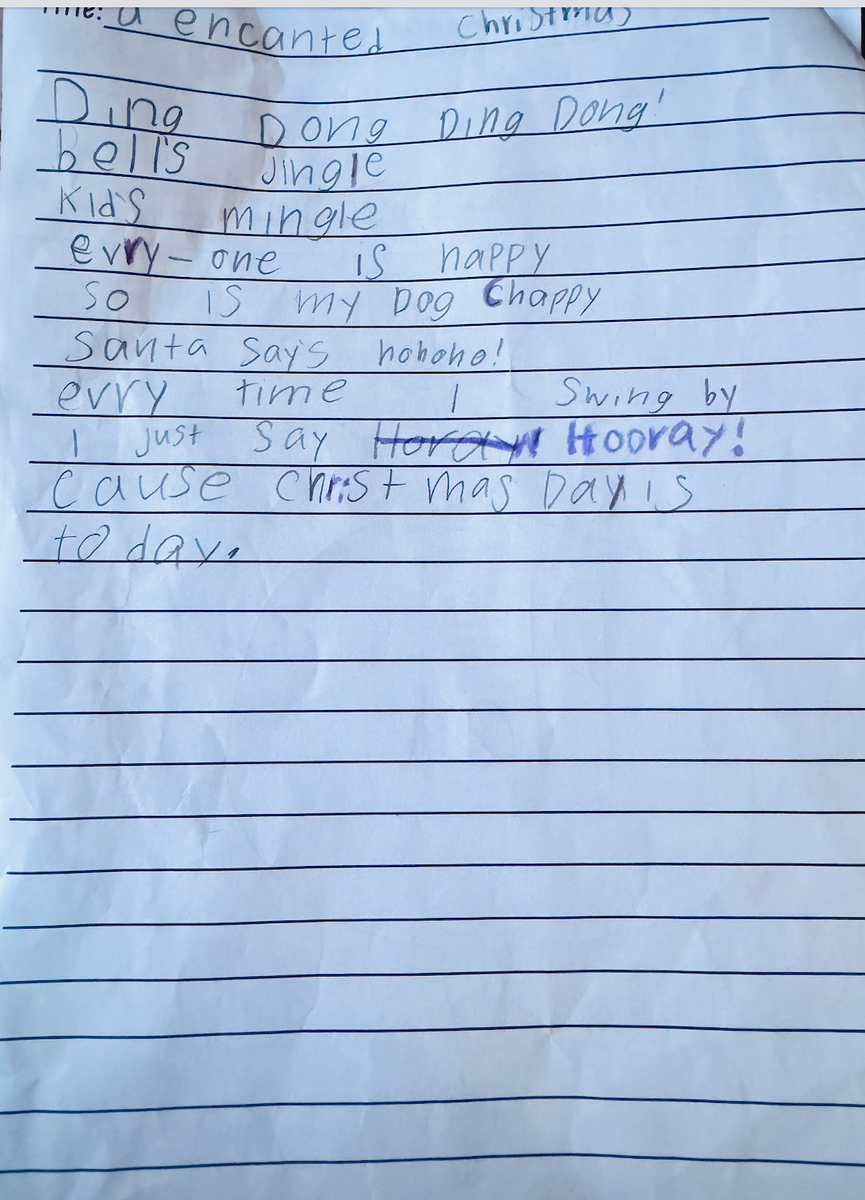 Title: a encanted Christmas
Ding Dong Ding Dong!
bell's Jingle
Kid's mingle
evry-one is happy
so is my Dog Chappy
Santa Say's hohoho!
evry time I Swing by
I just Say Horay Hooray!
cause Christmas Day is
to day.